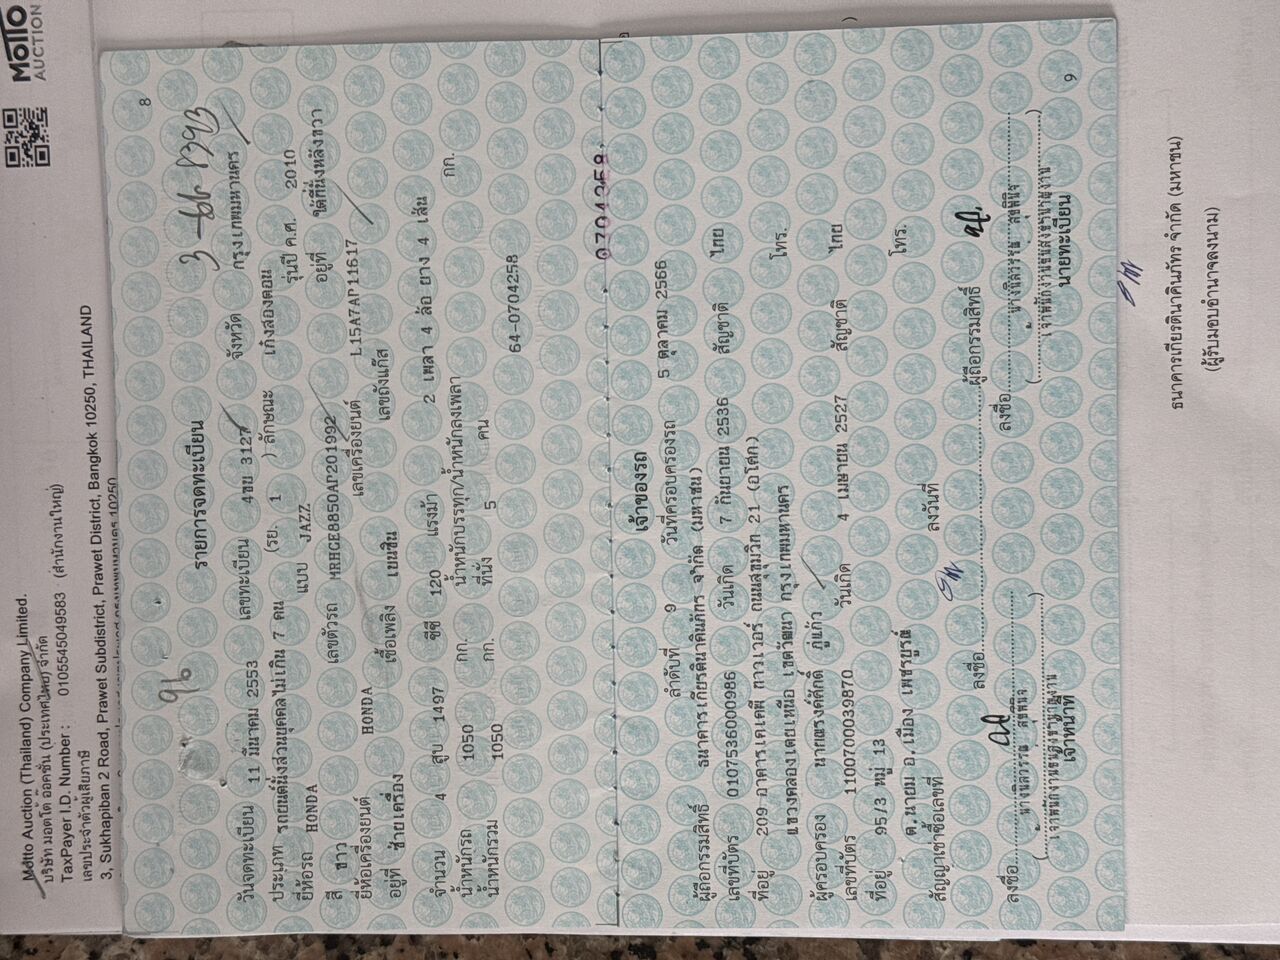 MOTTO
AUCTION
Motto Auction (Thailand) Company Limited.
บริษัท มอตโต้ อ๊อคชั่น (ประเทศไทย) จำกัด
TaxPayer I.D. Number :
เลขประจำตัวผู้เสียภาษี 0105545049583 (สำนักงานใหญ่)
3, Sukhapiban 2 Road, Prawet Subdistrict, Prawet District, Bangkok 10250, THAILAND
8
96
3
รายการจดทะเบียน
วันจดทะเบียน 11 มีนาคม 2553 เลขทะเบียน 4ชย 3127 จังหวัด กรุงเทพมหานคร
ประเภท รถยนต์นั่งส่วนบุคคลไม่เกิน 7 คน (รย. 1 ) ลักษณะ เก๋งสองตอน
ยี่ห้อรถ HONDA แบบ JAZZ รุ่นปี ค.ศ. 2010
สี ขาว เลขตัวรถ MRHGE8850AP201992 อยู่ที่ ใต้ที่นั่งหลังขวา
ยี่ห้อเครื่องยนต์ HONDA เลขเครื่องยนต์ L15A7AP11617
อยู่ที่ ซ้ายเครื่อง เชื้อเพลิง เบนซิน เลขถังแก๊ส
จำนวน 4 สูบ 1497 ซีซี 120 แรงม้า 2 เพลา 4 ล้อ ยาง 4 เส้น
น้ำหนักรถ 1050 กก. น้ำหนักบรรทุก/น้ำหนักลงเพลา กก.
น้ำหนักรวม 1050 กก. ที่นั่ง 5 คน
64-0704258
0704258
เจ้าของรถ
ลำดับที่ 9 วันที่ครอบครองรถ 5 ตุลาคม 2566
ผู้ถือกรรมสิทธิ์ ธนาคารเกียรตินาคินภัทร จำกัด (มหาชน)
เลขที่บัตร 0107536000986 วันเกิด 7 กันยายน 2536 สัญชาติ ไทย
ที่อยู่ 209 อาคารเคเคพี ทาวเวอร์ ถนนสุขุมวิท 21 (อโศก)
แขวงคลองเตยเหนือ เขตวัฒนา กรุงเทพมหานคร โทร.
ผู้ครอบครอง นายณรงค์ศักดิ์ ภู่แก้ว
เลขที่บัตร 1100700039870 วันเกิด 4 เมษายน 2527 สัญชาติ ไทย
ที่อยู่ 95/3 หมู่ 13
ต.นายม อ.เมือง เพชรบูรณ์ โทร.
สัญญาเช่าซื้อเลขที่ ลงวันที่
ลงชื่อ ผู้ถือกรรมสิทธิ์
ลงชื่อ ลงชื่อ
เจ้าพนักงานขนส่งชำนาญงาน เจ้าพนักงานขนส่งชำนาญงาน
เจ้าหน้าที่ นายทะเบียน
9
ธนาคารเกียรตินาคินภัทร จำกัด (มหาชน)
(ผู้รับมอบอำนาจลงนาม)